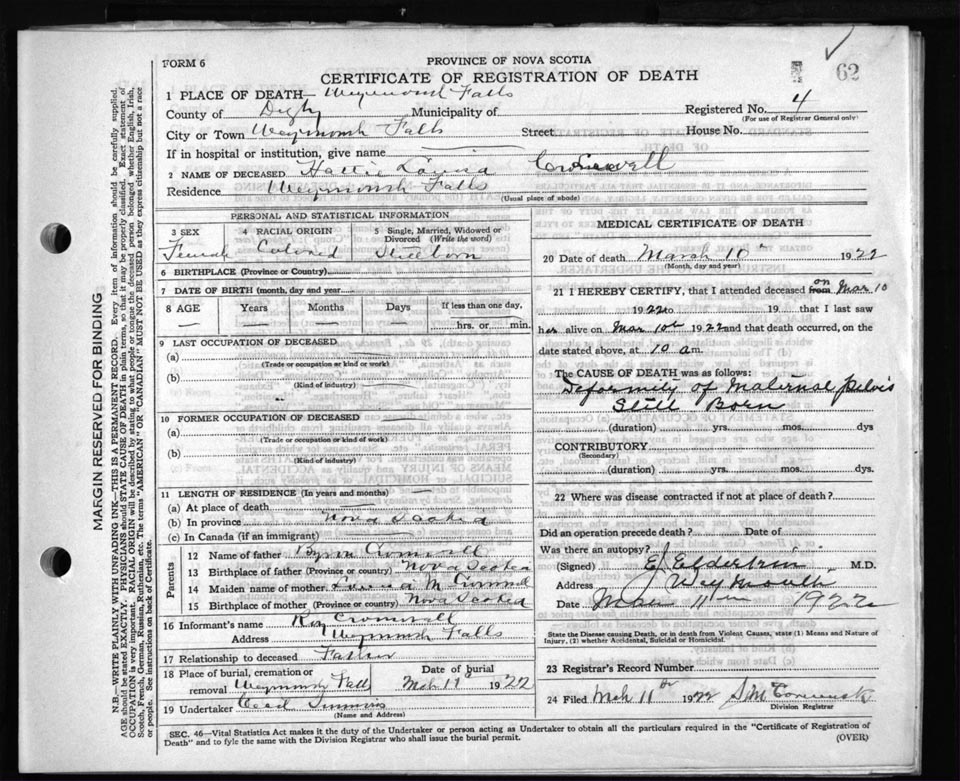 FORM 6
PROVINCE OF NOVA SCOTIA
62
CERTIFICATE OF REGISTRATION OF DEATH
1 PLACE OF DEATH— Weymouth Falls
County of Digby Municipality of
Registered No. 4
(For use of Registrar General only)
City or Town Weymouth Falls Street House No.
If in hospital or institution, give name
2 NAME OF DECEASED Hattie Louisa Cromwell
Residence Weymouth Falls
(Usual place of abode)
PERSONAL AND STATISTICAL INFORMATION
3 SEX
Female
4 RACIAL ORIGIN
Colored
5 Single, Married, Widowed or Divorced (Write the word)
Stillborn
6 BIRTHPLACE (Province or Country)
7 DATE OF BIRTH (month, day and year)
8 AGE Years Months Days If less than one day,
hrs. or min.
9 LAST OCCUPATION OF DECEASED
(a)
(Trade or occupation or kind of work)
(b)
(Kind of industry)
10 FORMER OCCUPATION OF DECEASED
(a)
(Trade or occupation or kind of work)
(b)
(Kind of industry)
11 LENGTH OF RESIDENCE (In years and months)
(a) At place of death
(b) In province Nova Scotia
(c) In Canada (if an immigrant)
Parents
12 Name of father Cromwell
13 Birthplace of father (Province or country) Nova Scotia
14 Maiden name of mother Louisa M Cromwell
15 Birthplace of mother (Province or country) Nova Scotia
16 Informant's name Cromwell
Address Weymouth Falls
17 Relationship to deceased Father
18 Place of burial, cremation or removal Weymouth Falls
Date of burial
Mch 11 1922
19 Undertaker Cecil
(Name and Address)
MEDICAL CERTIFICATE OF DEATH
20 Date of death March 10th 1922
(Month, day and year)
21 I HEREBY CERTIFY, that I attended deceased from on Mar 10
1922 to 19 that I last saw
her alive on Mar 10th 1922 and that death occurred, on the
date stated above, at 10 a m.
The CAUSE OF DEATH was as follows:
Deformity of Maternal pelvis
Still Born
(duration) yrs. mos. dys
CONTRIBUTORY
(Secondary)
(duration) yrs. mos. dys.
22 Where was disease contracted if not at place of death?
Did an operation precede death? Date of
Was there an autopsy?
(Signed) M.D.
Address Weymouth
Date Mar 11th 1922
State the Disease causing Death, or in death from Violent Causes, state (1) Means and Nature of
Injury, (2) whether Accidental, Suicidal or Homicidal.
23 Registrar's Record Number
24 Filed Mch 11th 1922
Division Registrar
SEC. 46—Vital Statistics Act makes it the duty of the Undertaker or person acting as Undertaker to obtain all the particulars required in the "Certificate of Registration of
Death" and to fyle the same with the Division Registrar who shall issue the burial permit.
(OVER)
MARGIN RESERVED FOR BINDING
N.B.—WRITE PLAINLY WITH UNFADING INK—THIS IS A PERMANENT RECORD. Every item of information should be carefully supplied.
AGE should be stated EXACTLY. PHYSICIANS should STATE CAUSE OF DEATH in plain terms, so that it may be properly classified. Exact statement of
OCCUPATION is very important. RACIAL ORIGIN will be described by stating to what people or tongue the deceased person belonged whether English, Irish,
Scotch, French, German, Russian, Ruthenian, etc. The terms "AMERICAN" OR "CANADIAN" MUST NOT BE USED as they express citizenship but not a race
or people. See instructions on back of Certificate.